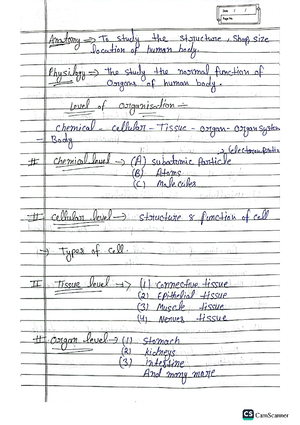 Date / /
Page No.
Anatomy → To study the structure, Shap, size
location of human body.
Physilogy → The study the normal function of
Organs of human body.
Level of organisation :-
chemical - cellular - Tissue - organ - organ System
Body
# Chemical level → (A) subatomic Particle
(B) Atoms
(C) Molecules
# cellular level → structure & function of cell
→ Types of cell.
# Tissue level → (1) connective tissue
(2) Epithelial tissue
(3) Muscle tissue
(4) Nerves tissue
# organ level → (1) Stomach
(2) kidneys
(3) intestine
And many more
CS CamScanner